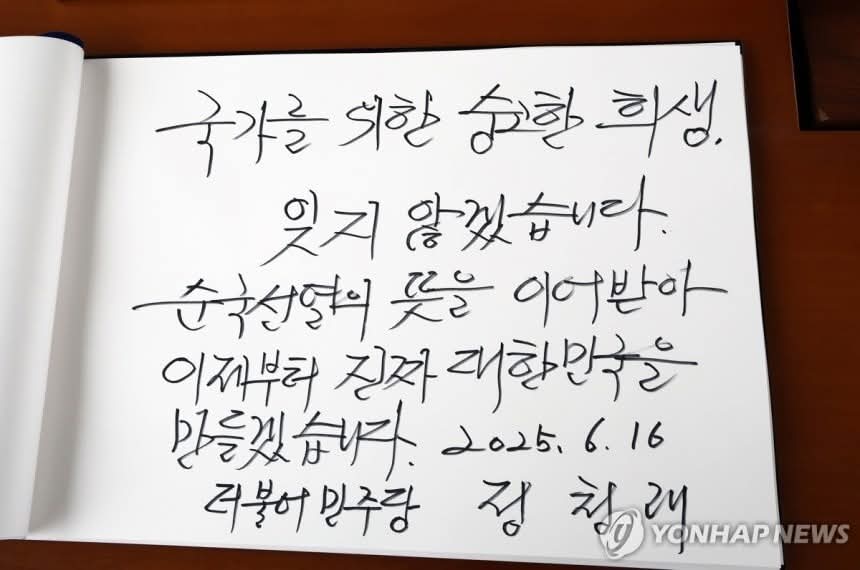 국가를 위한 숭고한 희생.
잊지 않겠습니다.
순국선열의 뜻을 이어받아
이제부터 진짜 대한민국을
만들겠습니다. 2025. 6. 16
더불어민주당 정청래
YONHAP NEWS